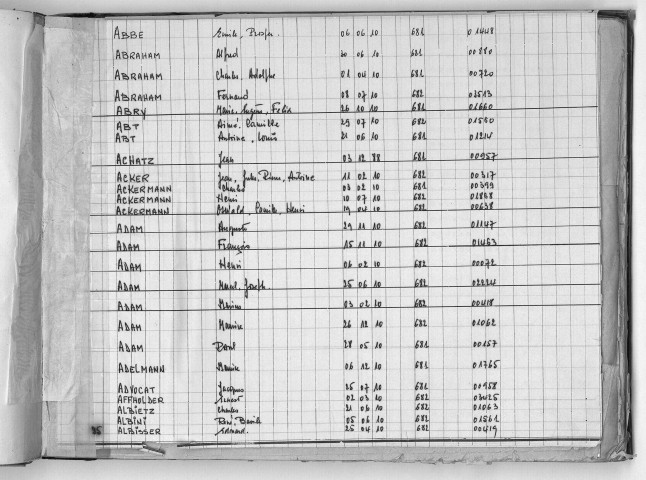 ABBE Emile, Prosper 06 06 10 681 01448
ABRAHAM Alfred 20 06 10 681 00880
ABRAHAM Charles, Adolphe 01 04 10 681 00720
ABRAHAM Fernand 08 07 10 682 02513
ABRY Marie, Eugène, Felix 26 10 10 682 01660
ABT Aimé, Camille 29 07 10 682 01550
ABT Antoine, Louis 21 06 10 681 01214
ACHATZ Jean 03 12 88 681 00957
ACKER Jean, Antoine 11 02 10 682 00317
ACKERMANN Charles 03 02 10 681 00399
ACKERMANN Henri 10 07 10 682 01838
ACKERMANN Oswald, Camille, Henri 19 04 10 682 00638
ADAM Auguste 29 11 10 682 01147
ADAM François 15 11 10 682 01463
ADAM Henri 06 02 10 682 00072
ADAM Marcel, Joseph 25 06 10 682 02224
ADAM Marius 03 02 10 682 00418
ADAM Maurice 26 12 10 682 01062
ADAM Paul 28 05 10 681 00157
ADELMANN Maurice 06 12 10 681 01765
ADVOCAT Jacques 25 07 10 681 00958
AFFHOLDER Ernest 02 03 10 682 03425
ALBIETZ Charles 21 06 10 681 01063
ALBINI René, Basile 05 06 10 682 01561
ALBISSER Edmond 25 04 10 682 00419